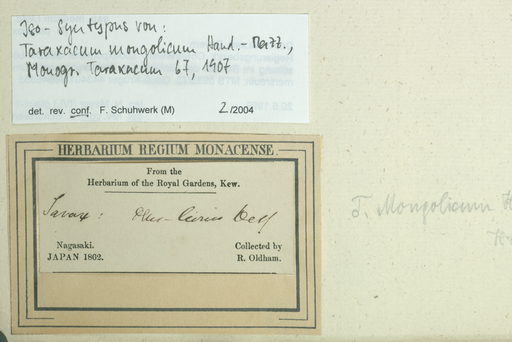 Iso-Syntypus von:
Taraxacum mongolicum Hand.-Mazz.,
Monogr. Taraxacum 67, 1907
det. rev. conf. F. Schuhwerk (M) 2/2004
HERBARIUM REGIUM MONACENSE.
From the
Herbarium of the Royal Gardens, Kew.
Tarax: Dens-leonis Desf
Nagasaki. Collected by
JAPAN 1862. R. Oldham.
T. Mongolicum H